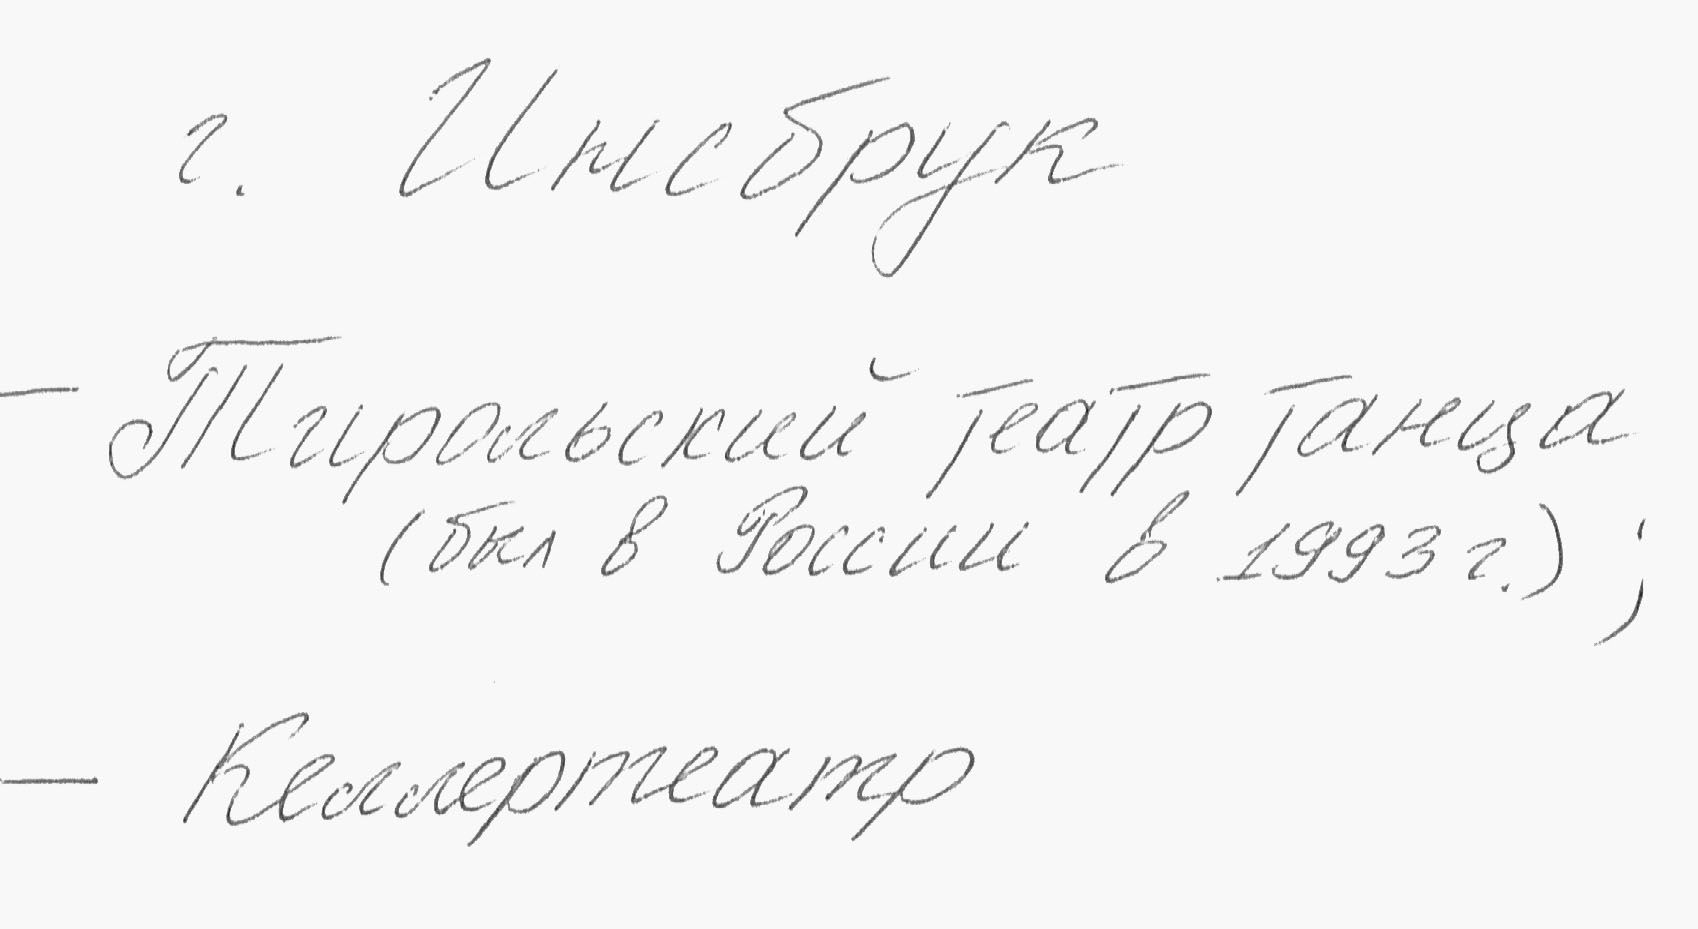 г. Инсбрук
— Тирольский театр танца
(был в России в 1993 г.);
— Келлертеатр